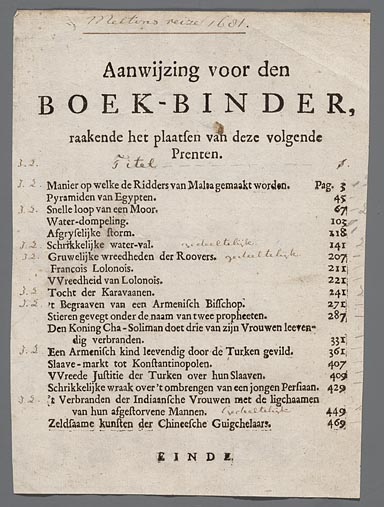 Meltons reize 1681.
Aanwijzing voor den
BOEK-BINDER,
raakende het plaatsen van deze volgende
Prenten.
3.2. Titel 1.
3.2. Manier op welke de Ridders van Malta gemaakt worden. Pag. 3
Pyramiden van Egypten. 45
3.2. Snelle loop van een Moor. 67
Water-dompeling. 103
Afgryselijke storm. 118
3.2. Schrikkelijke water-val. gedeeltelijk 141
3.2. Gruwelijke wreedheden der Roovers. gedeeltelijk 207
François Lolonois. 211
VVreedheid van Lolonois. 221
3.2. Tocht der Karavaanen. 241
3.2. 't Begraaven van een Armenisch Bisschop. 271
Stieren gevegt onder de naam van twee propheeten. 287
Den Koning Cha-Soliman doet drie van zijn Vrouwen leeven-
dig verbranden. 331
3.2. Een Armenisch kind leevendig door de Turken gevild. 361
Slaave-markt tot Konstantinopolen. 407
VVreede Justitie der Turken over hun Slaaven. 409
Schrikkelijke wraak over 't ombrengen van een jongen Persiaan. 429
3.2. 't Verbranden der Indiaansche Vrouwen met de ligchaamen
van hun afgestorvene Mannen. gedeeltelijk 449
Zeldsaame kunsten der Chineesche Guigchelaars. 469
EINDE